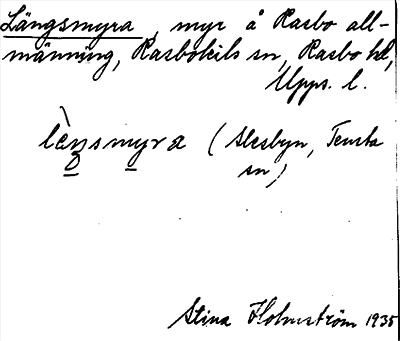 Längsmyra, myr å Rasbo all-
männing, Rasbokils sn, Rasbo hd,
Upps. l.
lèŋsmyra (Alesbyn, Tensta
sn)
Stina Holmström 1935